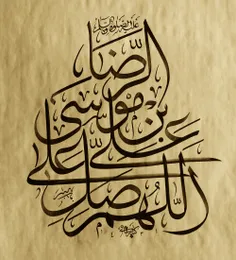 اللهم صل
على علي
بن موسى
الرضا